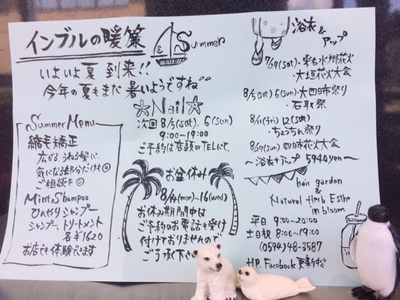 インブルの暖簾
Summer
いよいよ夏 到来!!
今年の夏もまだ暑いようですね
☆Nail☆
次回 8/5(sat)、6(sun)
9:00~19:00
ご予約は店頭orTELにて。
Summer Menu
縮毛矯正
広がる、うねる髪に
気になる部分だけも☺
ご相談を☺
Mint Shampoo
ひんやりシャンプー
シャンプー、トリートメント
各¥1620
お店でも体験できます
お盆休み
8/14(mon)~16(wed)
お休み期間中は
ご予約のお電話も受け
付けておりませんので
ご了承下さい
浴衣&
アップ
・大垣花火大会
8/5(sat)、6(sun)・大四日市祭り
・石取祭
・ちょうちん祭り
8/27(sun) 四日市花火大会
~浴衣+アップ 5940yen~
hair garden &
Natural Herb Esthe
in bloom
平日 9:00~20:00
土日祝 8:00~19:00
(059)348-3587
HP、Facebook 更新中